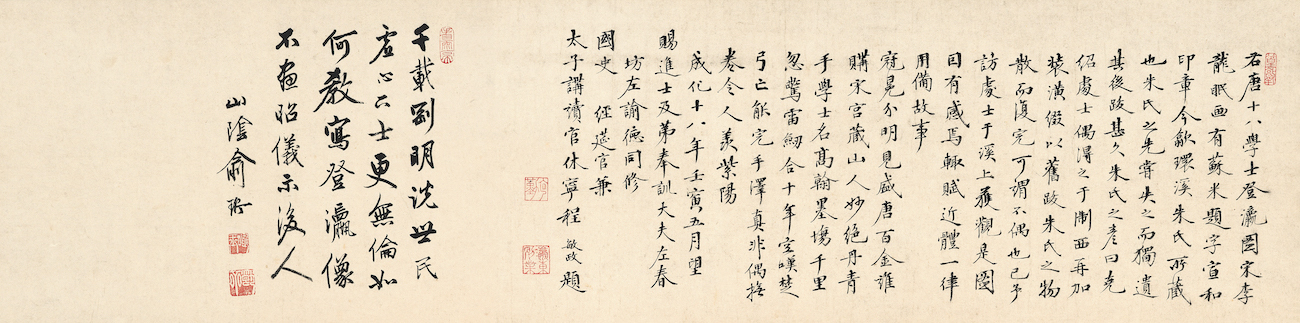 右唐十八學士登瀛圖宋李
龍眠画有蘇米題字宣和
印章今歙環溪朱氏所藏
也朱氏之先嘗失之而獨遺
其後跋甚久朱氏之彥曰克
紹處士偶得之于淛西再加
裝潢俾以舊跋朱氏之物
散而復完可謂不偶也已予
訪處士于溪上獲觀是圖
因有感焉輒賦近體一律
用備故事
冠冕分明見盛唐百金誰
購宋宮藏山人妙絕丹青
手學士名高翰墨場千里
忽驚雷劒合十年空嘆楚
弓亡能完手澤真非偶撫
卷令人羨紫陽
成化十八年壬寅五月望
賜進士及第奉訓大夫左春
坊左諭德同修
國史 經筵官兼
太子講讀官休寧程敏政題
千載劉明說世民
虛心下士更無倫如
何教寫登瀛像
不畫昭儀示後人
山陰俞